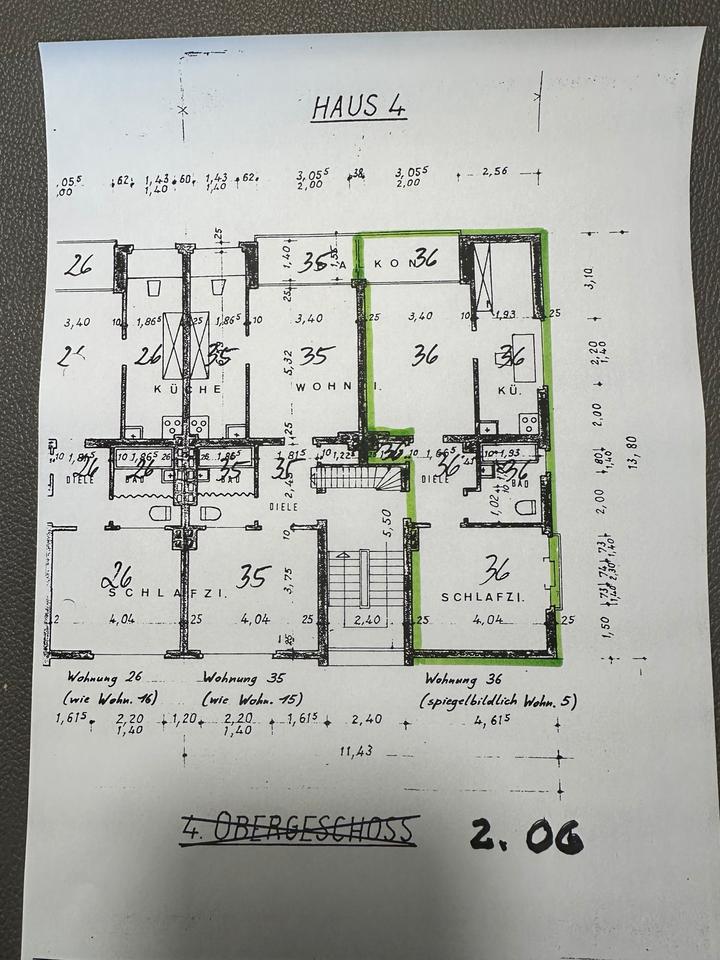 HAUS 4
,05⁵ 62 1,43 60 1,43 62 3,05⁵ 38 3,05⁵ 2,56
,00 1,40 1,40 2,00 2,00
25
26 1,40 35 1,55 BALKON 36
3,10
25
3,40 10 1,86⁵ 25 1,86⁵ 10 3,40 25 3,40 10 1,93 25
26 35 5,32 35 36 36 2,20
1,40
KÜCHE WOHNZI. KÜ.
2,00
25
13,80
10 1,86⁵ 26 26 1,86⁵ 10 1,81⁵ 10 1,22⁵ 36 10 1,66⁵ 10 1,93
26 26 35 35 36 36 80
1,40
DIELE BAD BAD 2,45 DIELE BAD
DIELE 1,02
2,00
5,50
10
26 35 3,75 36
SCHLAFZI. SCHLAFZI.
73 74 73
1,40 2,30 1,40
4,04 25 4,04 25 2,40 25 4,04 25
1,50
25
Wohnung 26 Wohnung 35 Wohnung 36
(wie Wohn. 16) (wie Wohn. 15) (spiegelbildlich Wohn. 5)
1,61⁵ 2,20 1,20 2,20 1,61⁵ 2,40 4,61⁵
1,40 1,40
11,43
4. OBERGESCHOSS 2. OG